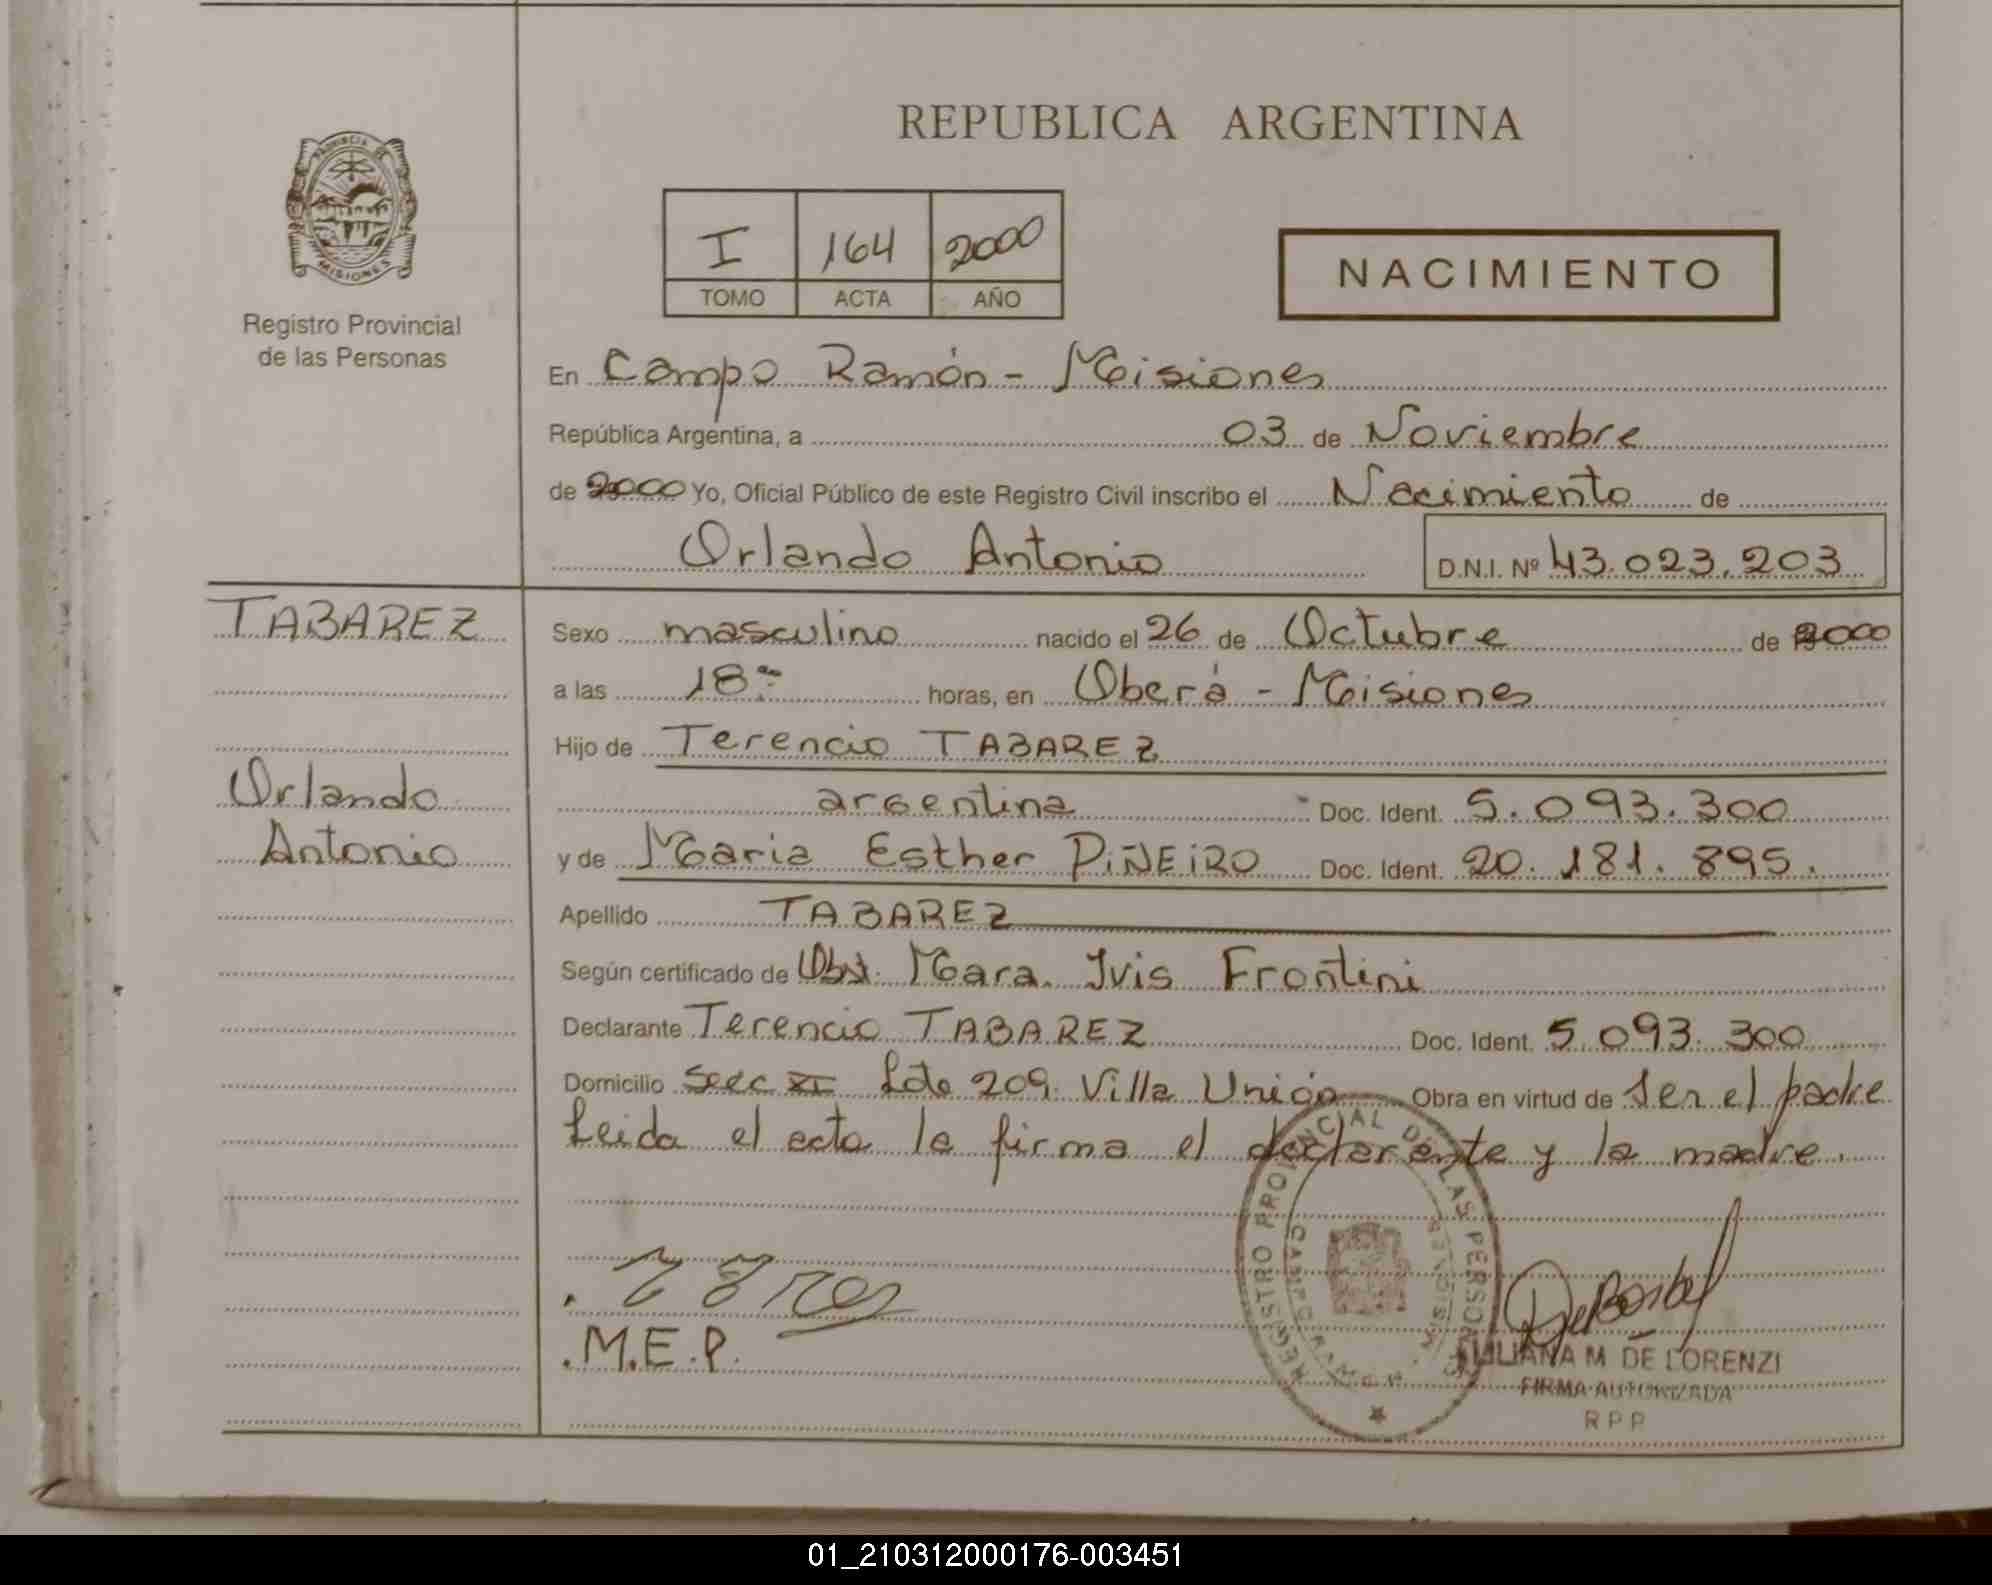 REPUBLICA ARGENTINA
PROVINCIA DE
MISIONES
Registro Provincial
de las Personas
I 164 2000
TOMO ACTA AÑO
NACIMIENTO
En Campo Ramón - Misiones
República Argentina, a 03 de Noviembre
de 2000 Yo, Oficial Público de este Registro Civil inscribo el Nacimiento de
Orlando Antonio D.N.I. Nº 43.023.203
TABAREZ
Orlando
Antonio
Sexo masculino nacido el 26 de Octubre de 2000
a las 18 horas, en Oberá - Misiones
Hijo de Terencio TABAREZ
argentina Doc. Ident. 5.093.300
y de Maria Esther PiÑEiRO Doc. Ident. 20.181.895.
Apellido TABAREZ
Según certificado de Obst. Mara Ivis Frontini
Declarante Terencio TABAREZ Doc. Ident. 5.093.300
Domicilio Secc XI Lote 209 Villa Unión Obra en virtud de Ser el padre
Leida el acta la firma el declarante y la madre.
M.E.P.
REGISTRO PROVINCIAL DE LAS PERSONAS
CAMPO RAMON
MISIONES
LILIANA M. DE LORENZI
FIRMA AUTORIZADA
R P P
01_210312000176-003451